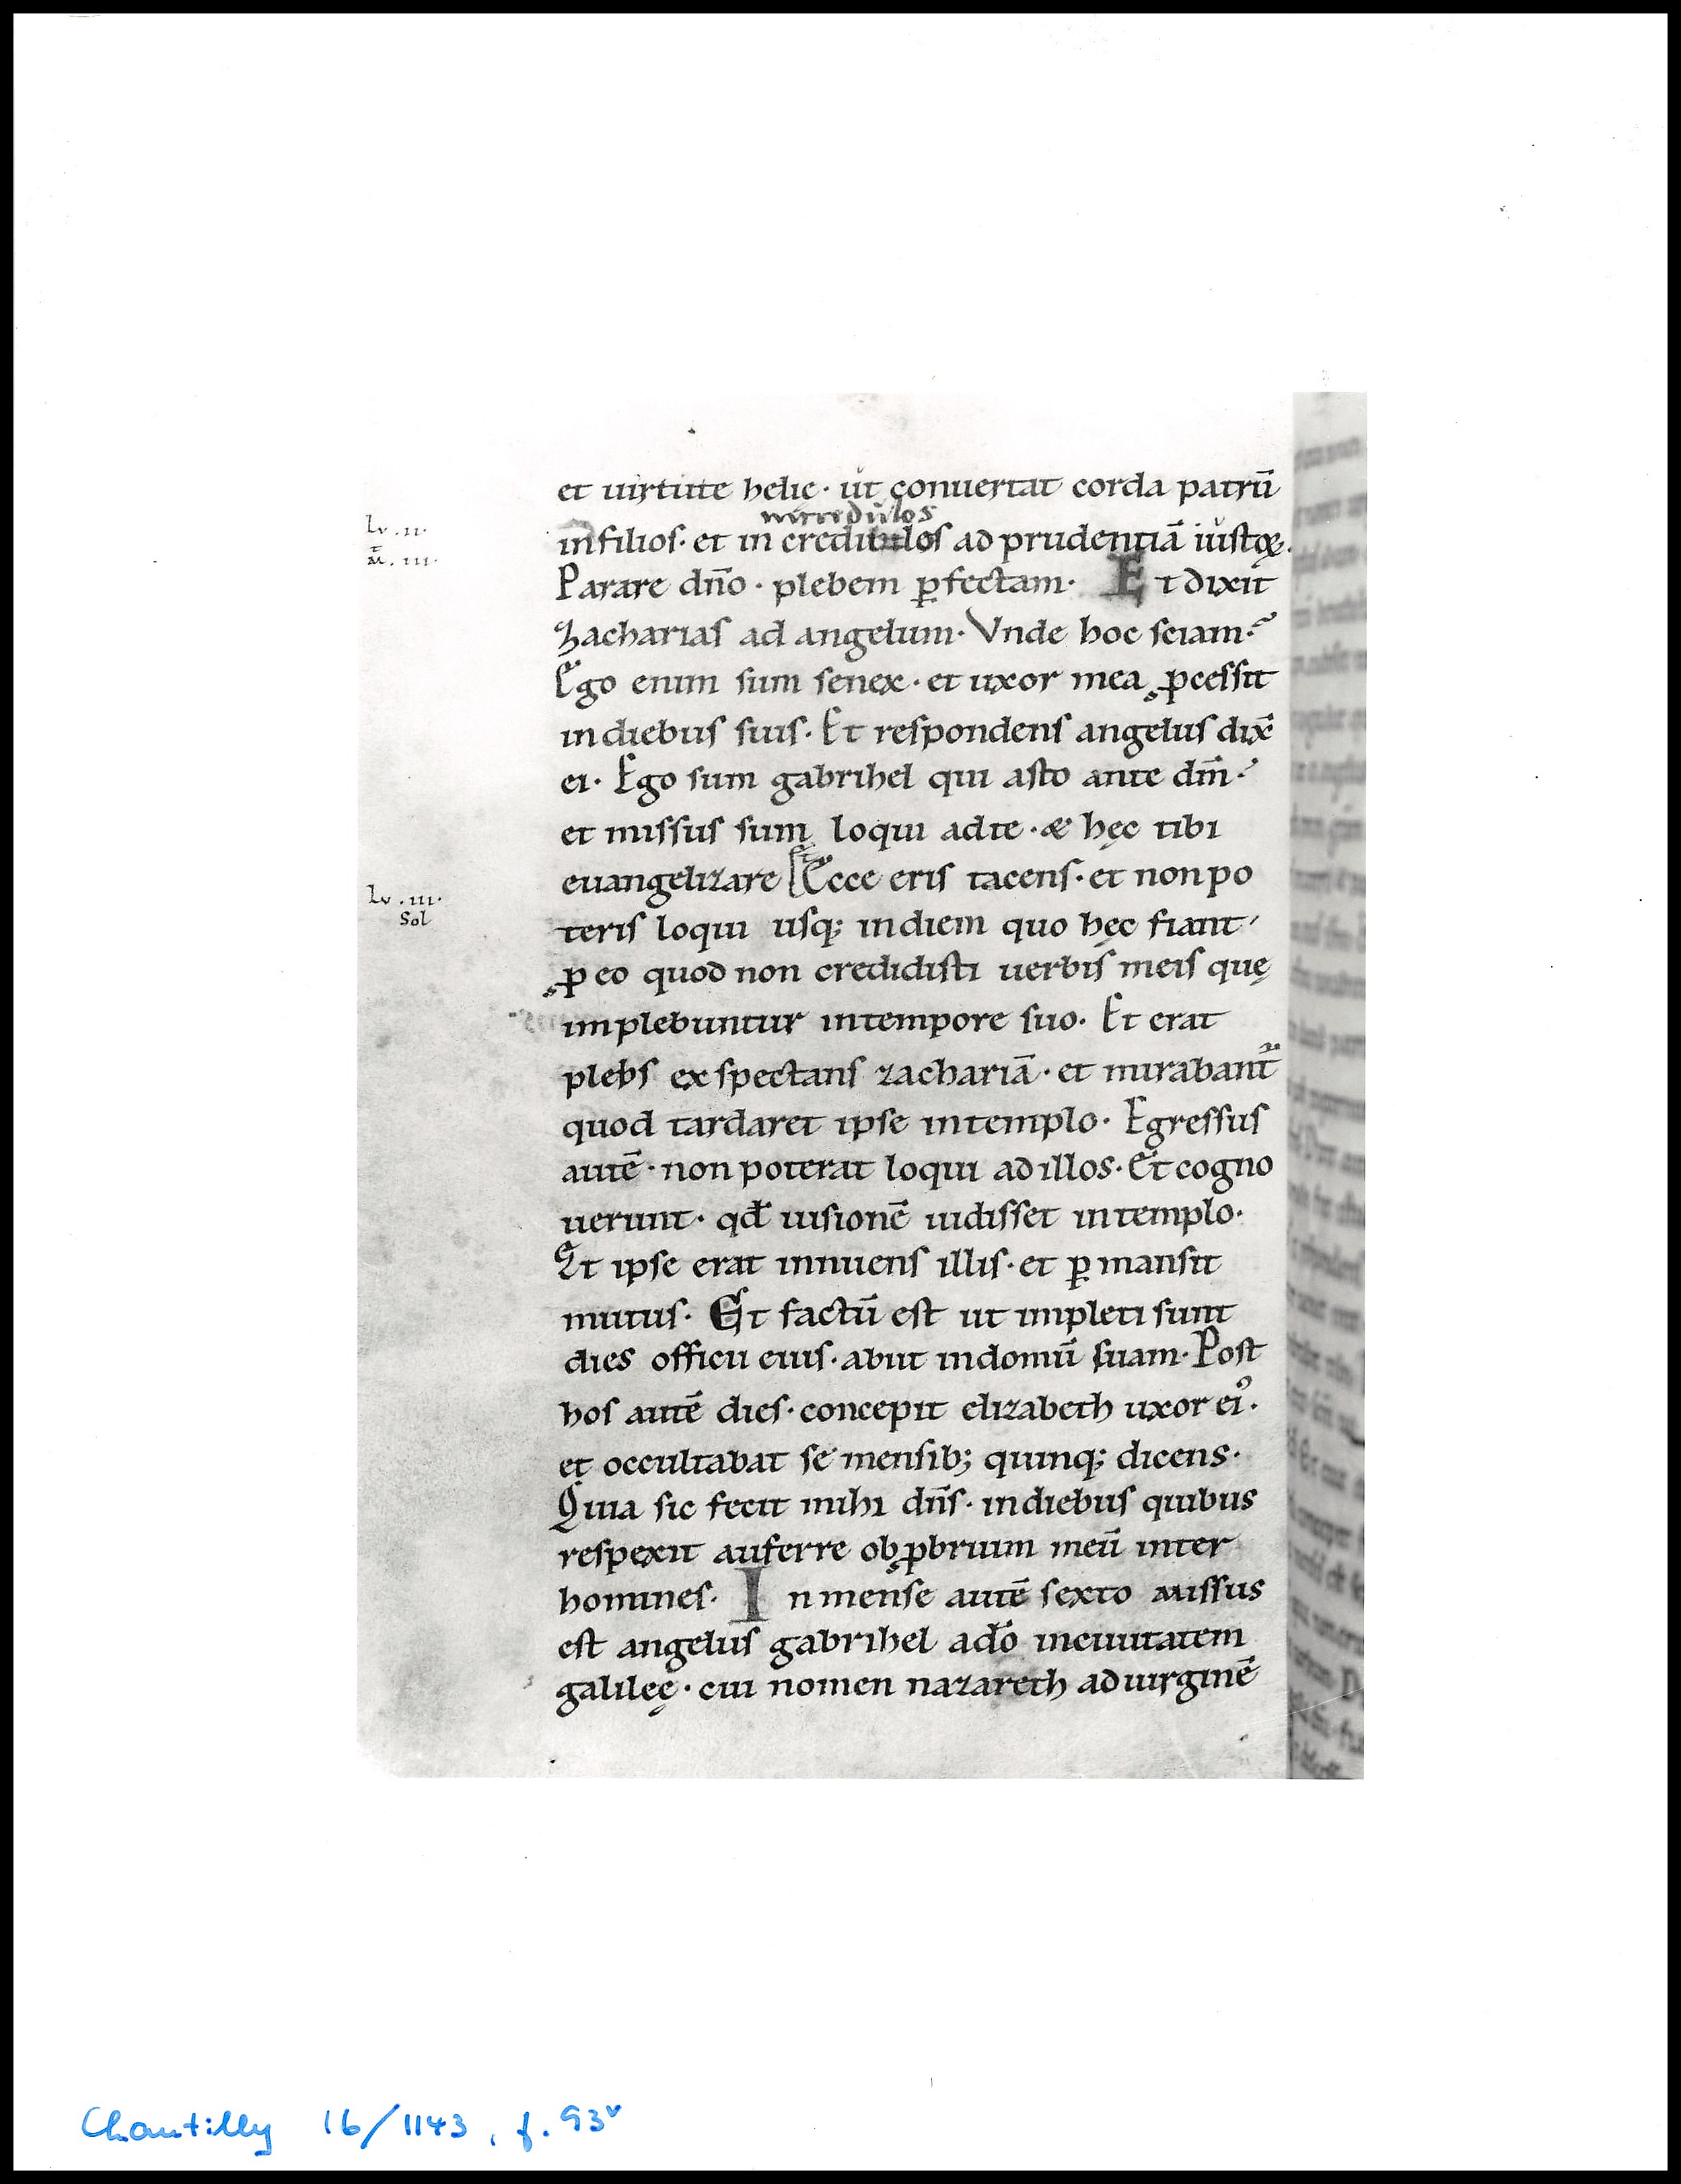 et uirtute helię · ut conuertat corda patrū
incredulos
in filios · et in credibiles ad prudentiā iustoꝝ.
Lv .ii.
.iii.
Parare dn̄o · plebem ꝑfectam · Et dixit
Zacharias ad angelum · Vnde hoc sciam ·
Ego enim sum senex · et uxor mea ꝓcessit
in diebus suis · Et respondens angelus dix̄
ei · Ego sum gabrihel qui asto ante dm̄ ·
et missus sum loqui ad te · & hęc tibi
euangelizare Ecce eris tacens · et non po
Lv .iii.
Sol
teris loqui usq; in diem quo hęc fiant
ꝓ eo quod non credidisti uerbis meis quę
implebuntur in tempore suo · Et erat
plebs exspectans zachariā · et mirabant᷑
quod tardaret ipse in templo · Egressus
autē · non poterat loqui ad illos · Et cogno
uerunt · qđ uisionē uidisset in templo ·
Et ipse erat innuens illis · et ꝑmansit
mutus · Et factū est ut impleti sunt
dies officii eius · abiit in domū suam · Post
hos autē dies · concepit elizabeth uxor ei᾽ ·
et occultabat se mensib; quinq; dicens ·
Quia sic fecit mihi dn̄s · in diebus quibus
respexit auferre obꝓbrium meū inter
homines · In mense autē sexto missus
est angelus gabrihel a dō in ciuitatem
galileę · cui nomen nazareth ad uirginē
Chantilly 16/1143, f. 93v